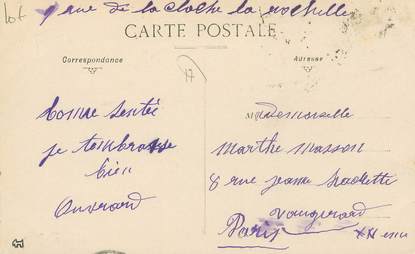 lot
9 rue de la cloche la rochelle
CARTE POSTALE
Correspondance
Adresse
17
bonne santé
je tembrasse
bien
Ouvrard
Mademoiselle
Marthe Masson
8 rue jeanne hachette
vaugirard
Paris